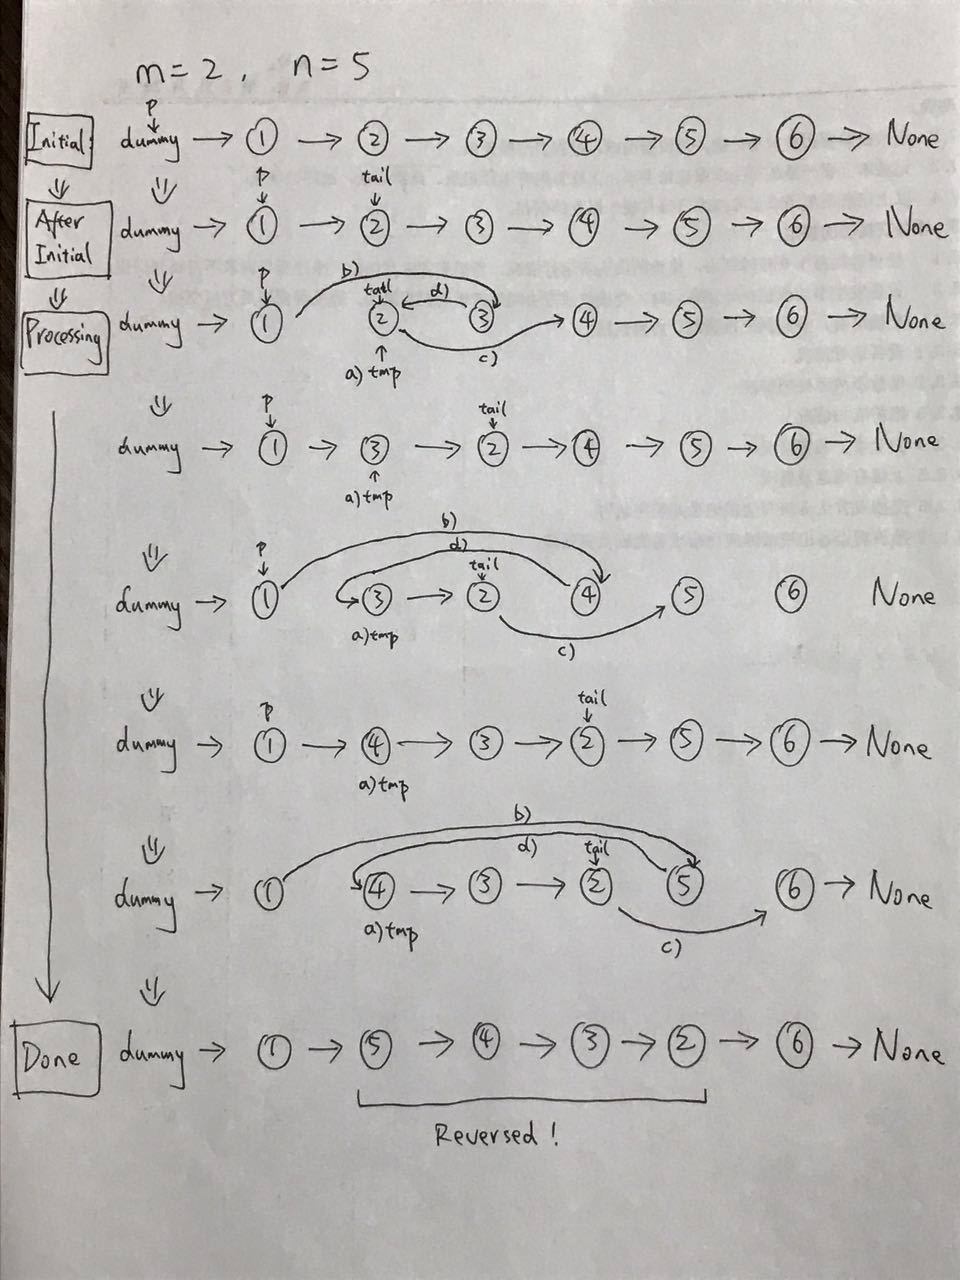 m = 2, n = 5
p
Initial dummy → 1 → 2 → 3 → 4 → 5 → 6 → None
p tail
After Initial dummy → 1 → 2 → 3 → 4 → 5 → 6 → None
p b) tail d)
Processing dummy → 1 2 3 4 → 5 → 6 → None
a) tmp c)
p tail
dummy → 1 → 3 → 2 → 4 → 5 → 6 → None
a) tmp
b)
p d) tail
dummy → 1 3 → 2 4 5 6 None
a) tmp c)
p tail
dummy → 1 → 4 → 3 → 2 → 5 → 6 → None
a) tmp
b)
d) tail
dummy → 1 4 → 3 → 2 5 6 → None
a) tmp c)
Done dummy → 1 → 5 → 4 → 3 → 2 → 6 → None
Reversed !